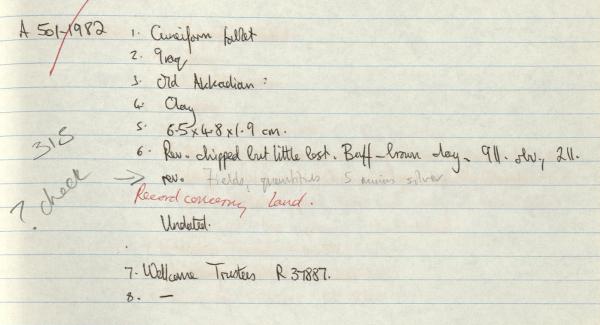 A 501-1982 1. Cuneiform tablet
2. Iraq
3. Old Akkadian :
4. Clay
5. 6.5 x 4.8 x 1.9 cm.
315
6. Rev. chipped but little lost. Buff-brown clay. 9 ll. obv., 2 ll.
? check → rev. Fields, quantities 5 minas silver
Record concerning land.
Undated.
7. Wellcome Trustees R 37887.
8. —